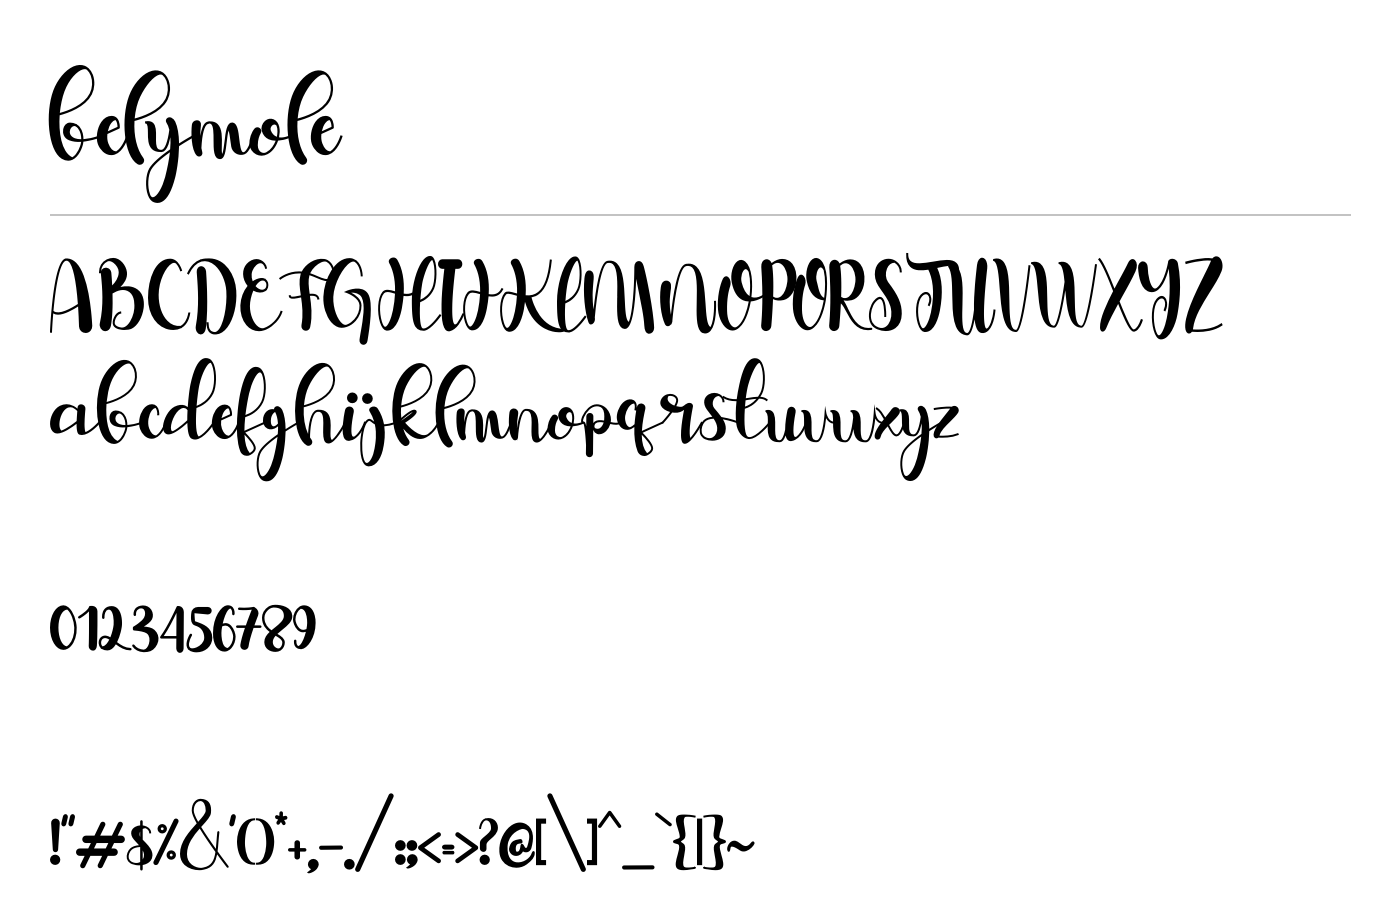 belymole
ABCDEFGHIJKLMNOPQRSTUVWXYZ
abcdefghijklmnopqrstuvwxyz
0123456789
!"#$%&'()*+,-./:;<=>?@[\]^_`{|}~